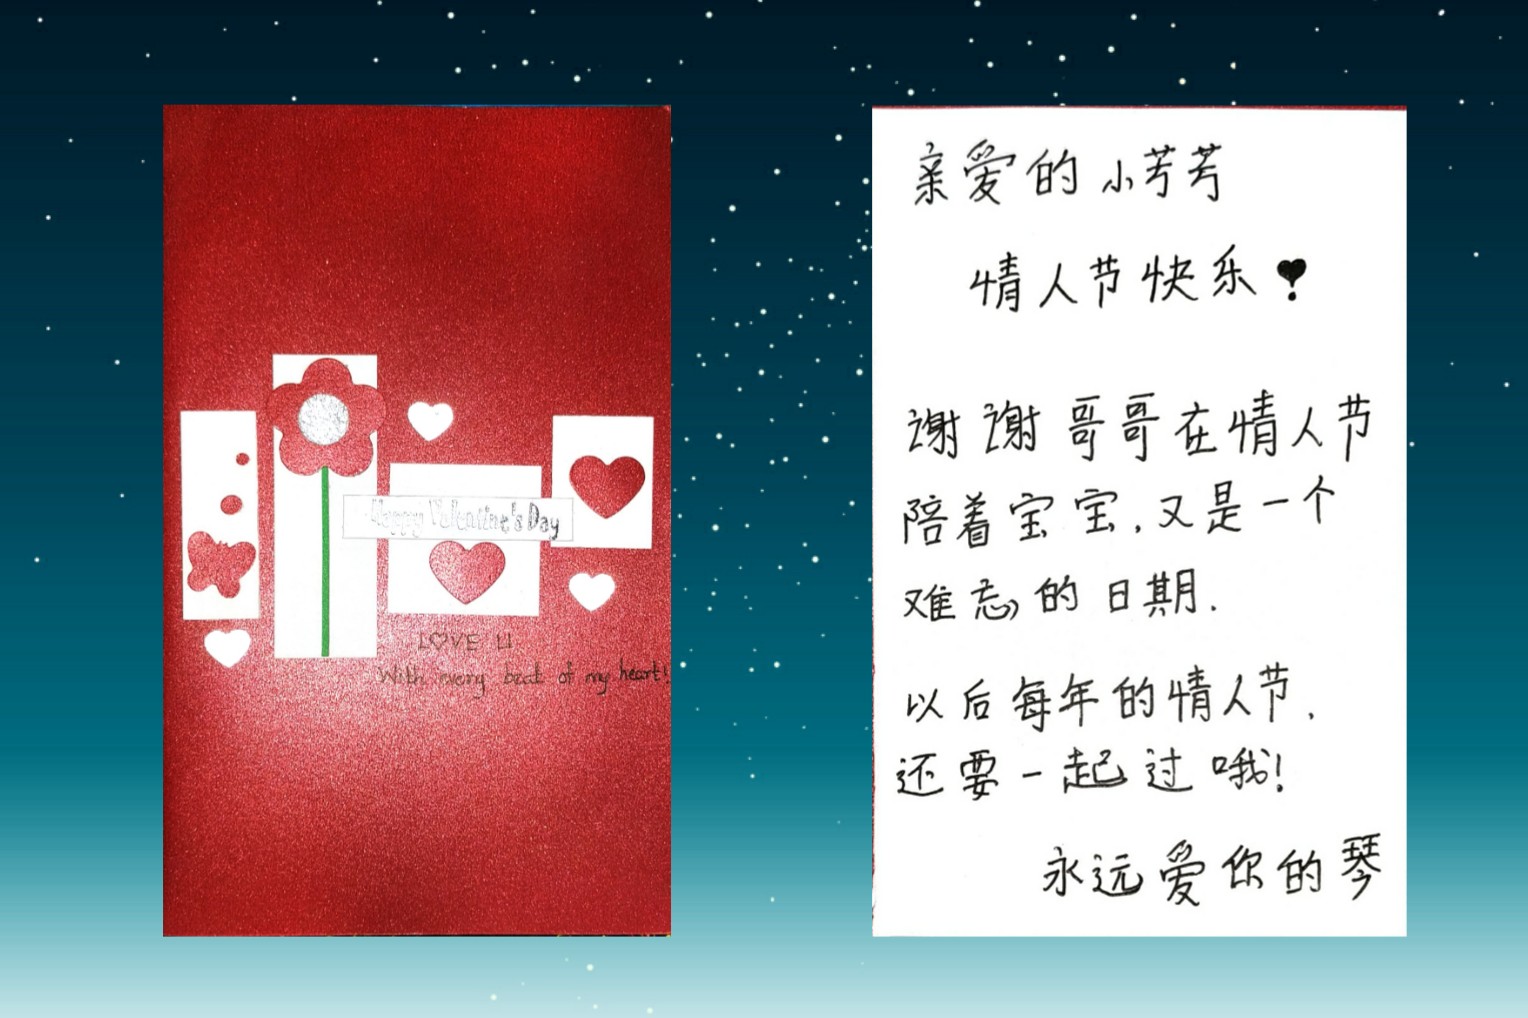 Happy Valentine's Day
L♡VE U
With every beat of my heart!
亲爱的小芳芳
情人节快乐❣
谢谢哥哥在情人节
陪着宝宝,又是一个
难忘的日期.
以后每年的情人节,
还要一起过哦!
永远爱你的琴